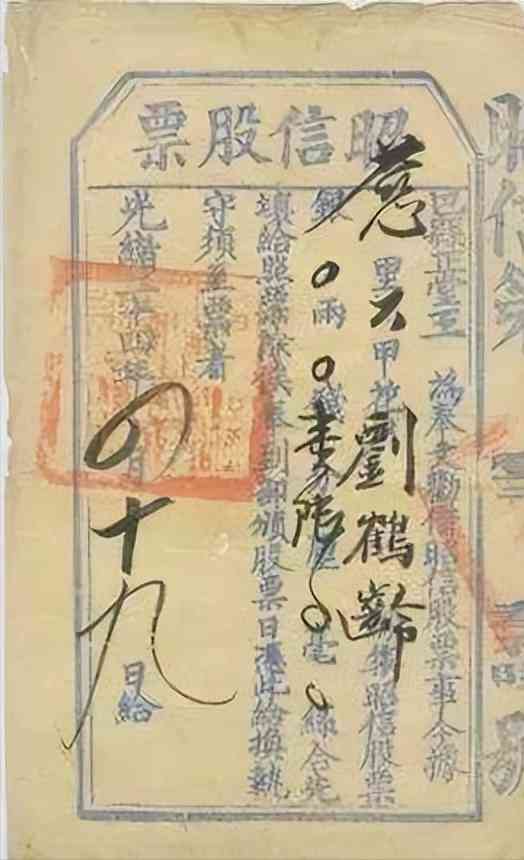 昭信股票
巴縣正堂王 為奉文勸借昭信股票事今據
慈里六甲花 劉鶴齡 昭信股票
銀〇兩〇錢壹分陸厘〇毫〇絲合先
填給照票 俟奉到部頒股票日憑此給換執
守須至票者
光緒二十四年四月十九日給